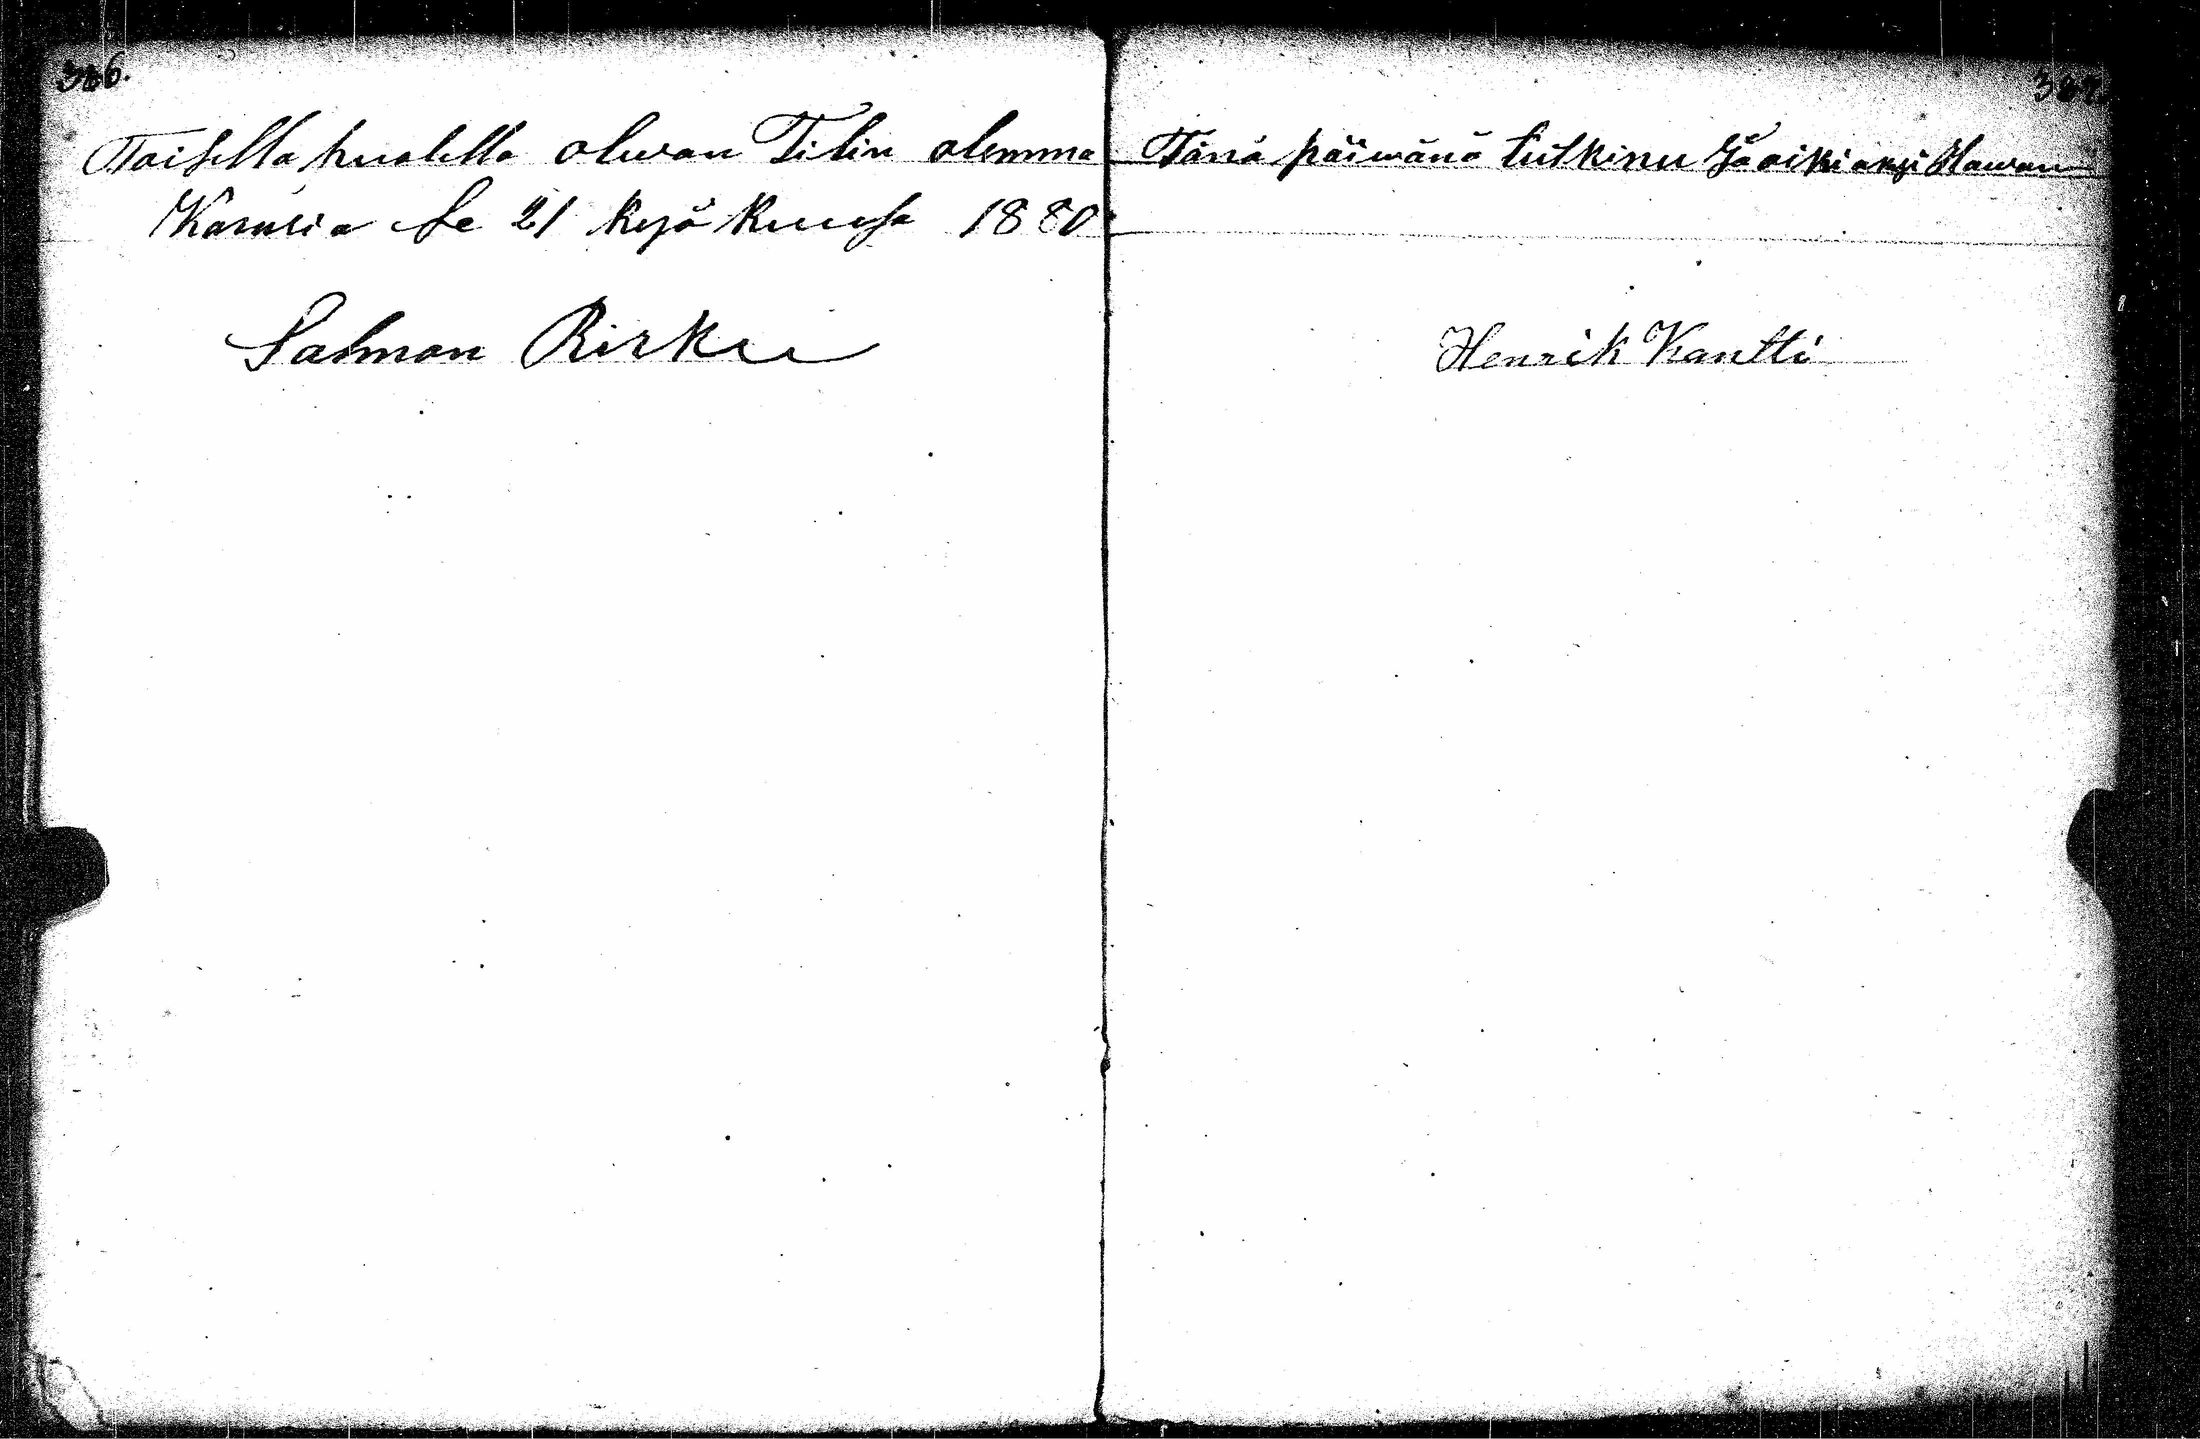 386.
Toisella puolella olewan Tilin olemma
Karusia Se 21 kesä kuusa 1880
Salmon Rirku
387.
Tänä päiwänä tutkinu Ja oikiaxsi Hawan
Henrik Kantti